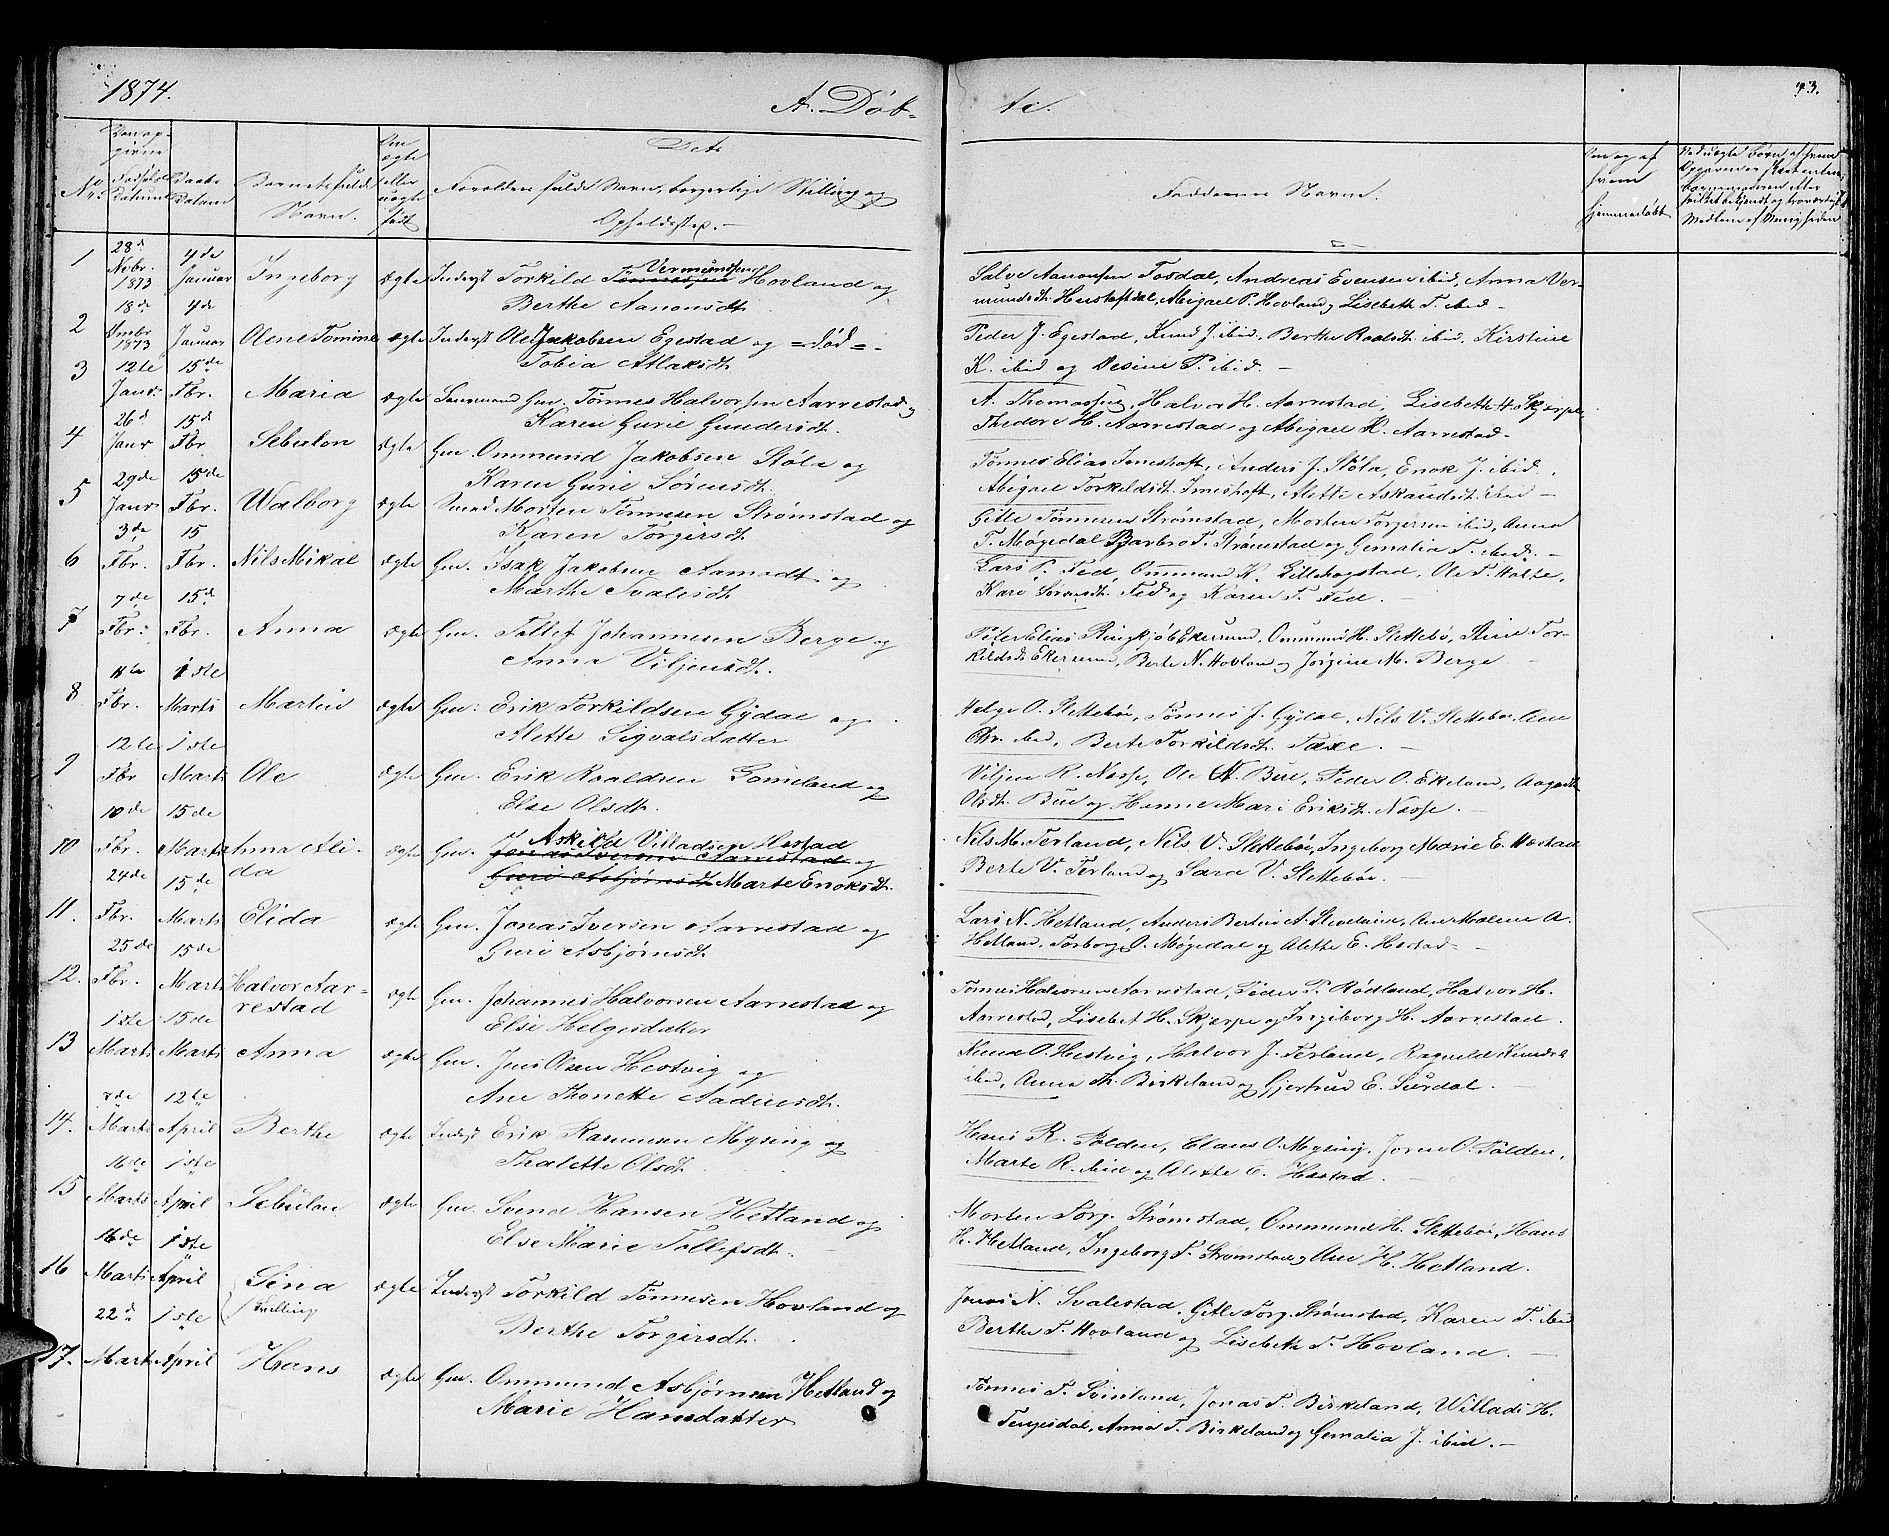 1874.
A. Døb-
te.
73.
No
Barnets fulde
Navn.
Det
Opholdssted.-
Faddernes Navne.
hjemmedøbt
1 28d Nvbr. 1873 4de Januar Ingeborg ægte Inderst Torkild Tønnesen Vermundsen Hovland og
Berthe Aanonsdt.
Salve Aanonsen Tosdal, Andreas Evensen ibid, Anna Ver-
mundsdt. Abigael P. Hovland, Lisebeth T. ibid -
2 18de 1873 4de Januar Olene Tomine ægte Inderst Ole Jakobsen Egestad og =død=
Tobia Atlaksdt.
Peder J. Egestad, Knud J. ibid, Berthe Roaldsdt. ibid, Kirstine
K. ibid og Desine P. ibid. -
3 12te Janr. 15de Fbr. Maria ægte Gm. Tönnes Halvorsen Aarrestad og
Karen Gurie Gundersdt.
A. Thomassen, Halvor H. Aarrestad, Lisebeth H. Skjerpe,
Thedore H. Aarrestad og Abigael K. Aarrestad.
4 26d Janr 15d Fbr. Sebulon ægte Gm. Ommund Jakobsen Støle og
Karen Gurie Sørensdt.
Tönnes Elias Imeshoft, Anders J. Støla, Enok J. ibid,
Abigael Torkildsdt. Imeshoft, Alette Askoudsdt. ibid -
5 29de Janr 15de Fbr. Walborg ægte Morten Tönnesen Strømstad og
Karen Torgirsdt.
Gitle Tönnesen Strømstad, Morten Torgersen ibid, Anna
T. Møgedal, Barbro T. Strømstad og Gemalia T. ibid. -
6 3de Fbr. 15 Fbr. Nils Mikal ægte Gm. Isak Jakobsen Aamodt og
Marthe Svalesdt.
Lars P. Fed, Ommund K. Lillehogstad, Ole T. Holte,
Kari Sørensdt. Fed og Karen T. Fed.
7 7de Fbr. 15d Fbr. Anna ægte Gm. Tollef Johannesen Berge og
Anna Viljensdt.
Peter Elias Ringkjøb Ekersund, Ommund H. Slettebø, Stine Tor-
kildsdt. Ekersund, Berte N. Hovland og Jørgine M. Berge
8 11te Fbr. 1ste Marts Martin ægte Gm. Erik Torkildsen Gýdal og
Alette Sigvalsdatter
Helge O. Slettebø, Tönnes J. Gýdal, Nils V. Slettebø, Ane
Chr. ibid, Berte Torkildsdt. Faxe. -
9 12te Fbr 1ste Marts Ole ægte Gm. Erik Roaldsen Gomeland og
Else Olsdt.
Viljen R. Nosse, Ole N. Bue, Peder O. Ekeland, Aagaath
Olsdt. Bue og Hanne Mari Eriksdt. Nosse.
10 10de Fbr. 15de Marts Anna Ali-
da ægte Gm. Jonas Iversen Aarrestad Askild Villadsen Hestad og
Guri Asbjørnsdt. Marte Enoksdt.
Nils M. Terland, Nils V. Slettebø, Ingeborg Marie E. Hestad
Berte V. Terland og Sara V. Slettebø.
11. 24de Fbr. 15de Marts Elida ægte Gm. Jonas Iversen Aarrestad og
Guri Asbjørnsdt.
Lars N. Hetland, Anders Bertin A. Steveland, Ane Malene A.
Hetland, Torborg O. Møgedal og Alethe E. Hestad -
12. 25de Fbr. 15de Marts Halvor Aar-
restad ægte Gm. Johannes Halvorsen Aarrestad og
Else Helgesdatter
Tönnes Halvorsen Aarrestad, Peder P. Rødland, Halvor H.
Aarrestad, Lisebet H. Skjerpe og Ingiborg H. Aarrestad.
13 1ste Marts 15de Marts Anna ægte Gm. Jens Olsen Hestvig og
Ane Thonette Aadnesdt.
Knud O. Hestvig, Halvor J. Terland, Ragnild Knuds
ibid, Anna Th. Birkeland og Gjertrud E. Surdal.
14. 8de Marts 12te April Berthe ægte Inderst Erik Rasmusen Mysing og
Thalette Olsdt.
Hans R. Polden, Claus O. Mysing, Joren O. Polden,
Marte R. ibid og Alette E. Hestad.
15 16de Marts 1ste April Sebulon ægte Gm. Svend Hansen Hetland og
Else Marie Tollefsdt.
Morten Torg. Strømstad, Ommund H. Slettebø, Hans
H. Hetland, Ingeborg T. Strømstad og Ane H. Hetland.
16 16de Marts 1ste April Sina
Tvilling ægte Inderst Torkild Tönnesen Hovland og
Berthe Torgirsdt.
Jonas N. Svalestad, Gitle Torg. Strømstad, Karen T. ibid
Berthe T. Hovland og Lisebeth T. Hovland.
17. 22d Marts 1ste April Hans ægte Gm. Ommund Asbjørnsen Hetland og
Marie Hansdatter
Tönnes T. Svinland, Jonas T. Birkeland, Willads H.
Tengesdal, Anna T. Birkeland og Gemalia J. ibid. -